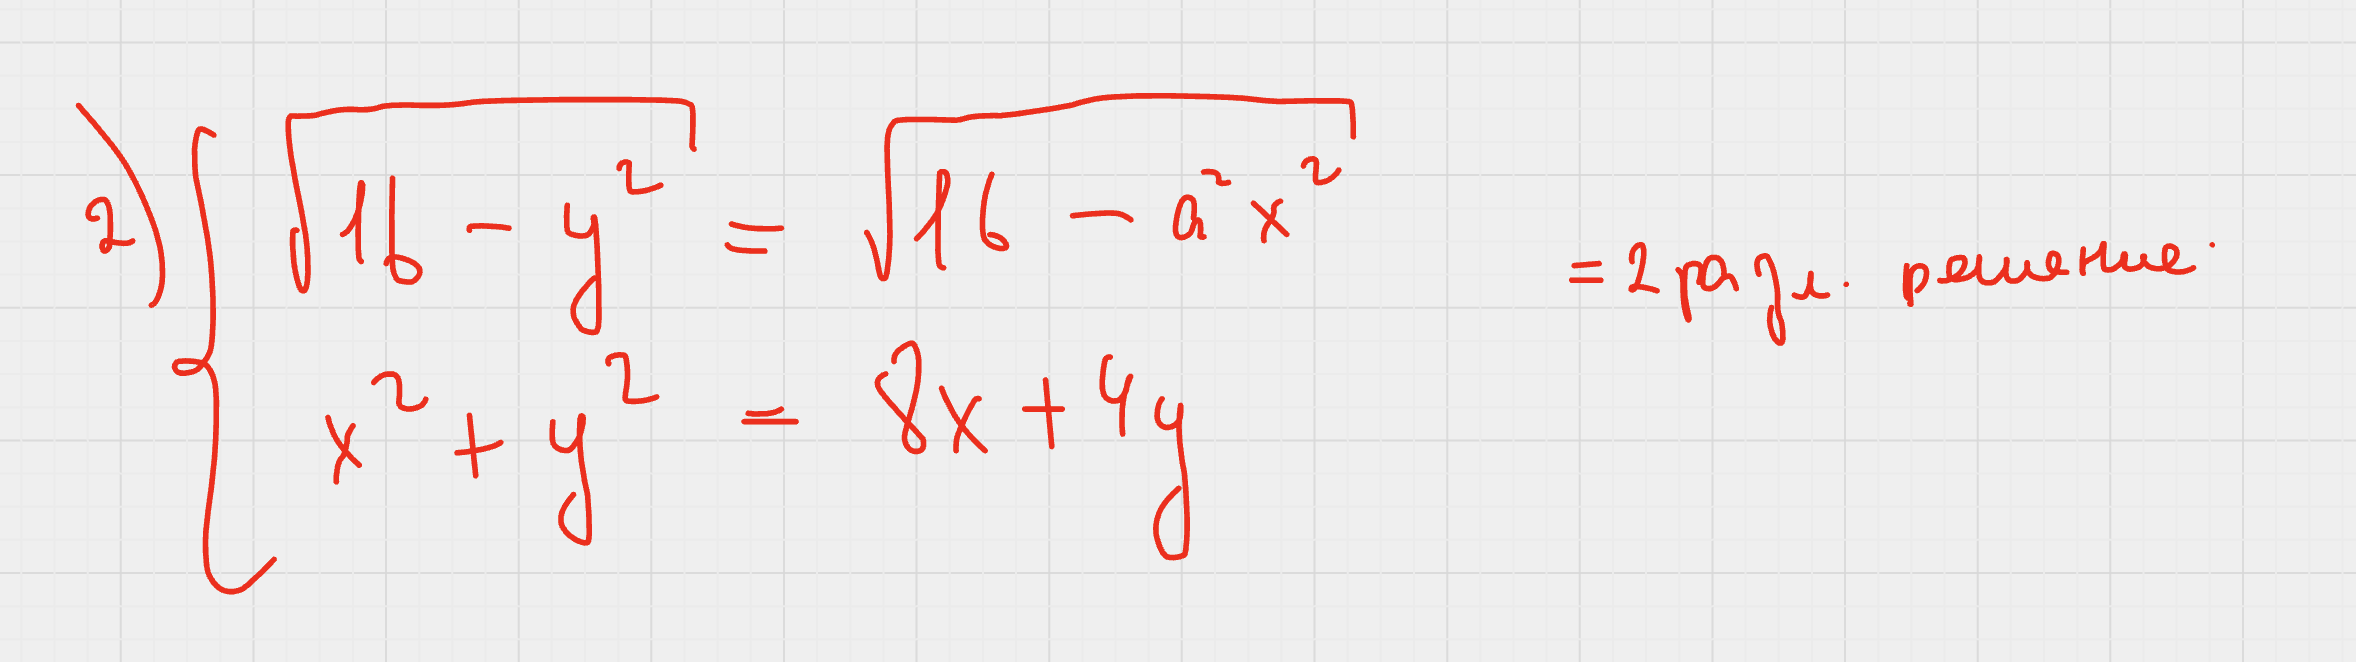 2) { √(16 - y²) = √(16 - a²x²)
x² + y² = 8x + 4y
= 2 разл. решение.